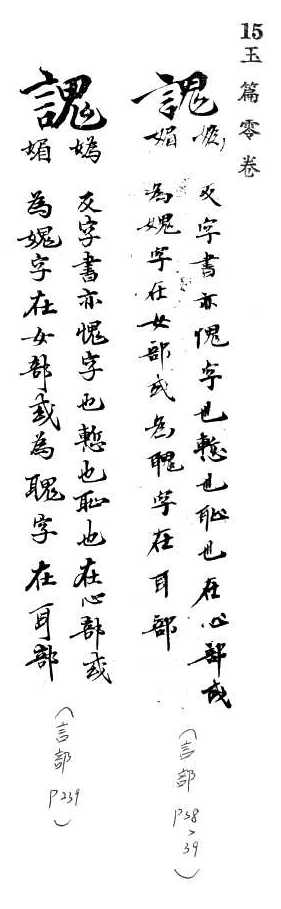 15 玉篇零卷
謉
媯反字書亦愧字也慙也恥也在心部或
媚為媿字在女部或為聭字在耳部
(言部 P38>39)
謉
媯反字書亦愧字也慙也恥也在心部或
媚為媿字在女部或為聭字在耳部
(言部 P239)